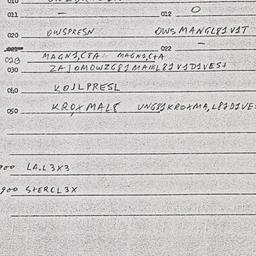 011 - 012 0
020 OWSPRESN OWSMANGL81V1T
022 -
MAGN3,C8A MAGN3,C8A
030 ZA10MOWZG81MAIRL81V1D1VES+
040 KOJLPRESL
050 KROXMAL8 UNG81KROXMA,L81D1VE
900 LA.L3X3
900 S+ERCL3X